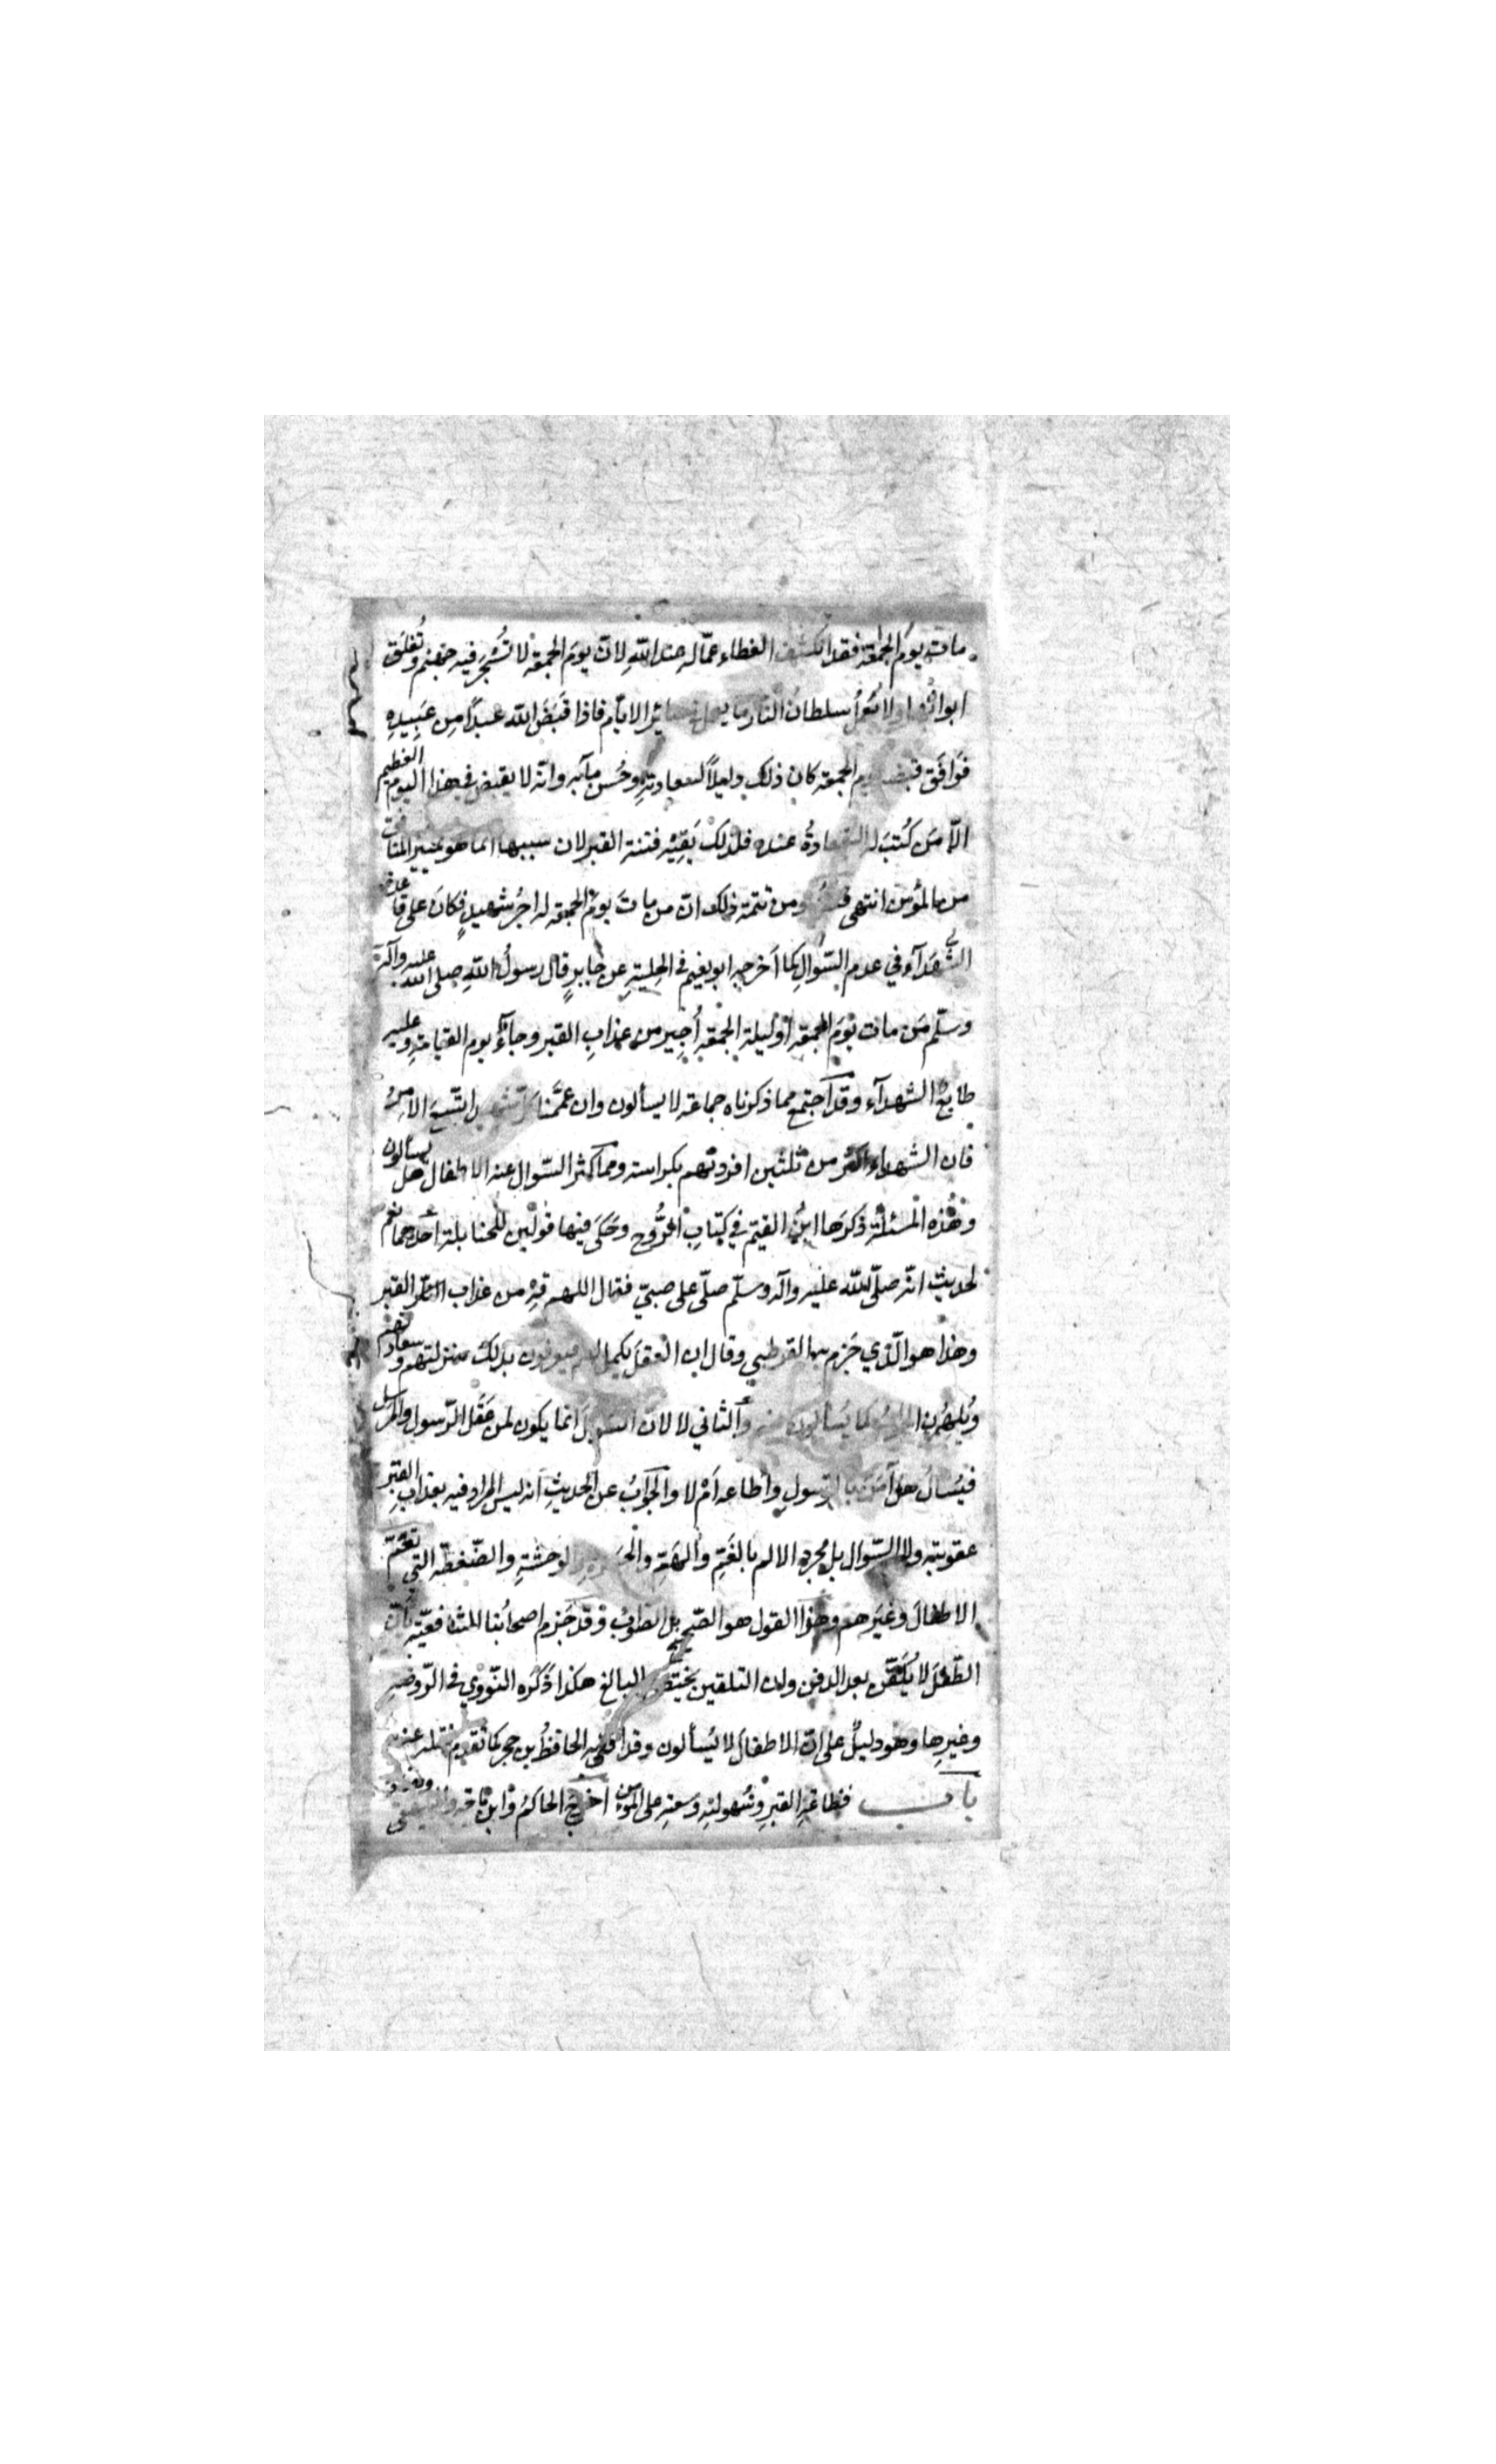 مات يوم الجمعة فقد انكشف الغطاء عمّاله عند الله لان يومَ الجمعة لا تُسْجَر فيه جهنم وتُغلَق
ابوابُها ولا يَعمَلُ سلطانُ النار ما يعمل في سائر الايّام فاذا قبَضَ الله عبداً مِن عَبيدِهِ
فَوَافَق قبضه يوم الجمعة كان ذلك دليلاً لسعادتِهِ وحُسن مآبه وانّه لا يقبض في هذا اليوم العظيم
الّا مَن كُتبَ له السعادةُ عنده فلذلك يَقِيْهِ فتنة القبر لان سببها انما هو تمييز المنافق
من المؤمن انتهى ومن تتمة ذلك انّ من مات يومَ الجمعة له اجرُ شهيدٍ فكانَ على قاعدة
الشُّهَدَآء في عدم السّوالِ كما اَخرجه ابو نعيم في الحِليةِ عن جابرٍ قال رسولُ اللهِ صلى الله عليه وآله
وسلّم مَن مات يَوْمَ الجمعة اَوْ ليلة الجمعة أُجِير من عذابِ القبر وجآءَ يوم القيامةِ وعليه
طابعُ الشهدآء وقد اجتمع مما ذكرناه جماعة لا يسألون وان عمّمنا كل شهيد اتّسعَ الامرُ
فان الشهداء اكثر من ثلثين افردتهم بكراسة ومما كثر السّوال عنه الاطفال هل يسألون
وهٰذه المسئلة ذكرَها ابنُ القيّم في كتابِ الرُّوح وحَكَى فيها قولَين للحنابلة احدهما نعم
لحديث انّه صلّى الله عليه وآله وسلّم صلّى على صبيّ فقال اللهم قِهْ من عذاب القبر
وهذا هو الّذي جَزم به القرطبي وقال ان العقلَ يكمل لهم ليعرفون بذلك منزلتهم وسعادتهم
وَيُلهَمُون الجوابَ عما يَسألون عنه والثاني لا لانّ السوالَ انما يكون لمن عقَل الرّسول والمرسل
فيُسألُ هل آمَنَ بالرّسولِ واَطاعه اَمْ لا والجوَابُ عن الحديثِ انه ليس المراد فيه بعذابِ القبر
عقوبته ولا السّوال بل مجرد الالم بالغَمِّ والهَمِّ والحسرةِ والوحشةِ والضّغطة التى تعُمّ
الاطفالَ وغيرَهم وهٰذا القول هو الصّحيح بل الصّوابُ وقد جَزم اصحابُنا الشافعيّة بأنّ
الطّفلَ لا يُلَقَّن بعد الدفن وان التلقين يختصّ بالبالغ هكذا ذَكَره النّووي في الرّوضةِ
وغيرِها وهو دليلٌ على انّ الاطفالَ لا يُسألون وقد افتى به الحافظُ بن حجر كما تقدم نقله عنه
بـاب فظاعَةِ القبرِ وسُهولتِهِ وسعتِهِ على المؤمن اَخرَج الحاكمُ وابن ماجة والبيهقى